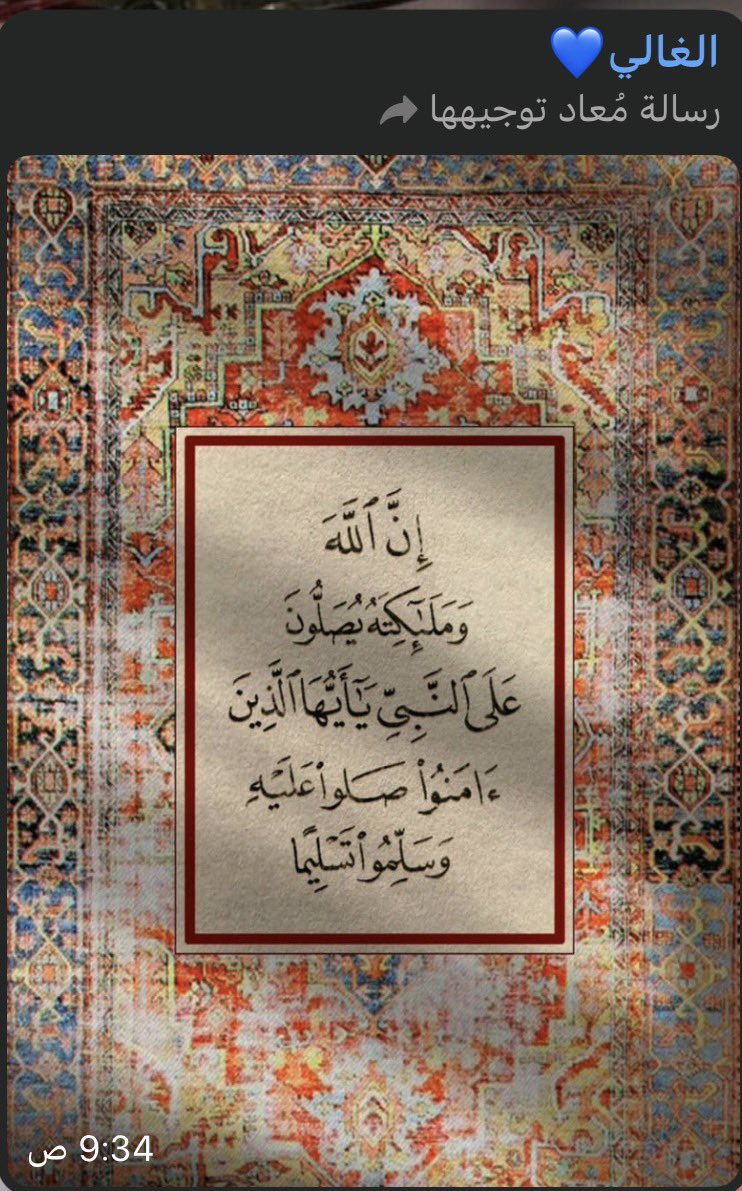 الغالي💙
رسالة مُعاد توجيهها
إِنَّ ٱللَّهَ
وَمَلَـٰٓئِكَتَهُۥ يُصَلُّونَ
عَلَى ٱلنَّبِىِّ يَـٰٓأَيُّهَا ٱلَّذِينَ
ءَامَنُوا۟ صلوا۟ عَلَيْهِ
وَسَلِّمُوا۟ تَسْلِيمًا
9:34 ص